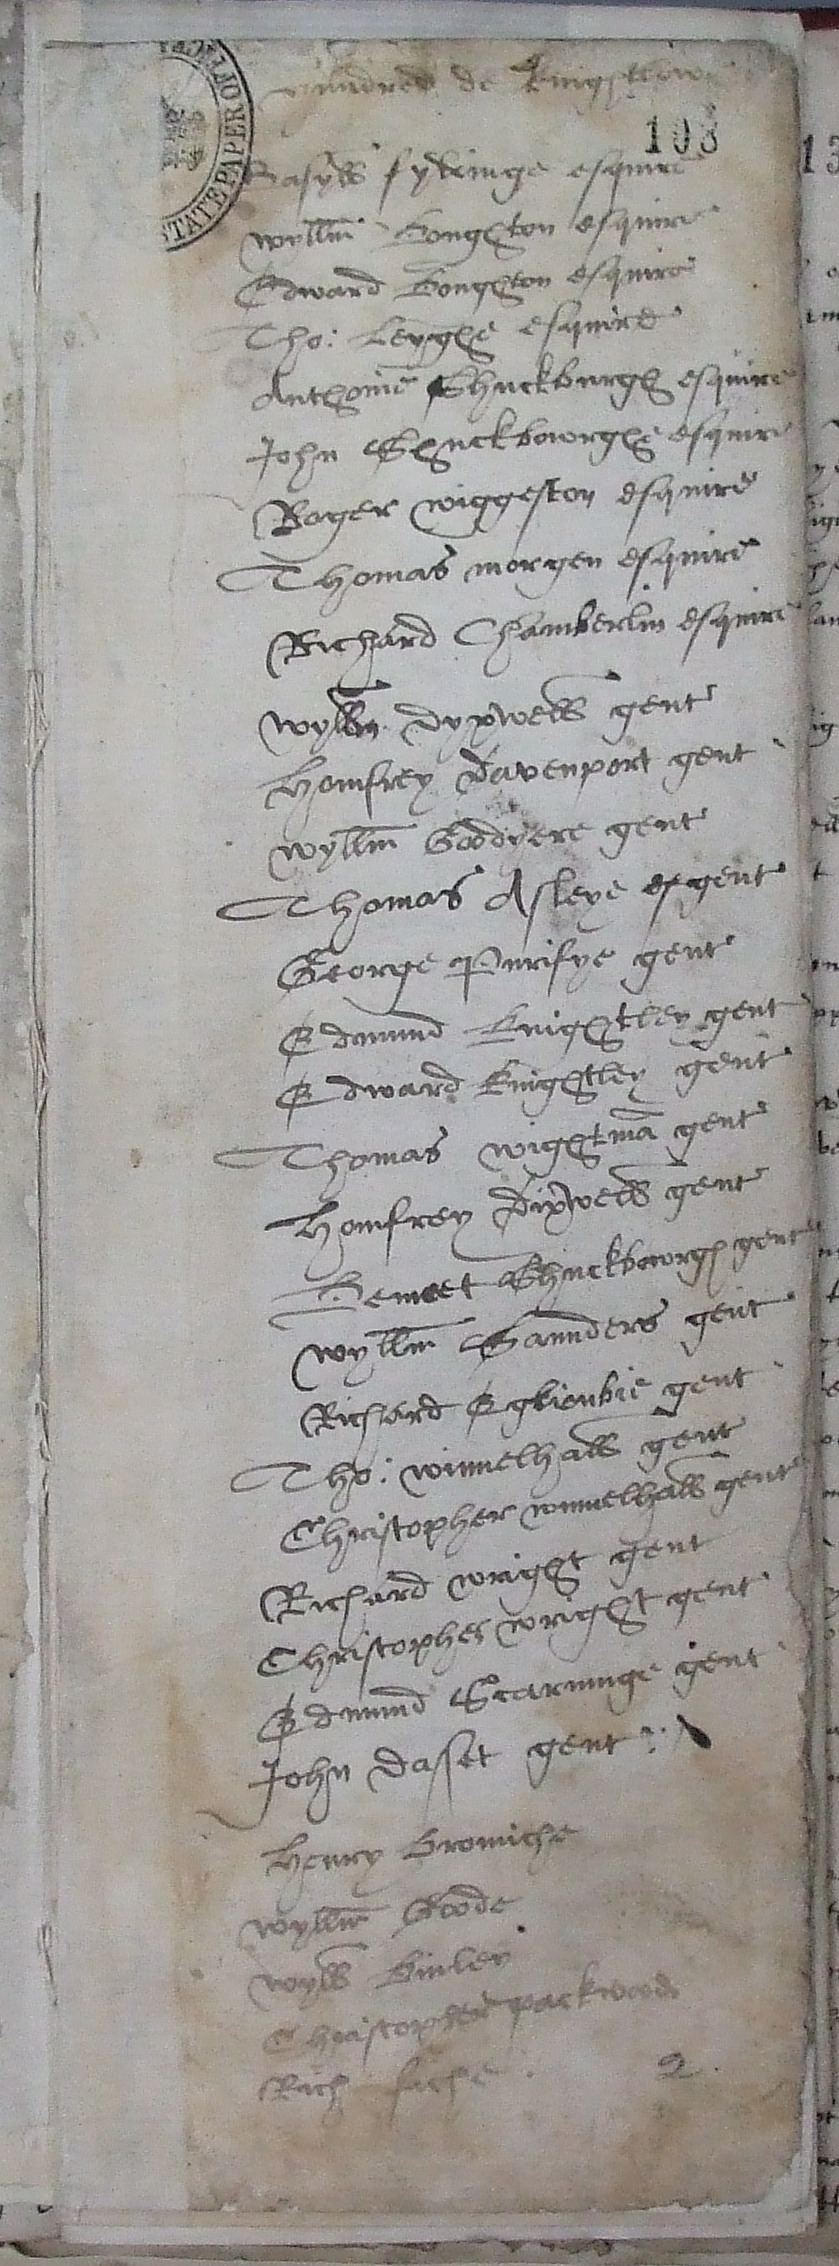 hundred de knightlow
108
Basyll fyldinge esquire
wyllm Boughton esquire
Edward Boughton esquire
Tho: Leyghe esquire
Anthonie Shuckburgh esquire
John Shuckbowrghe esquire
Roger wiggeston esquire
Thomas morgen esquire
Richard Chamberlin esquire
wyllm dyxwell gent
Homfrey davenport gent
wyllm Goodyere gent
Thomas Asleye gent
George Purifye gent
Edmund knightley gent
Edward knightley gent
Thomas wightmā gent
Homfrey dixwell gent
Shuckbowrgh gent
wyllm Saunders gent
Richard Eglionbie gent
Tho: winnelhall gent
Christopher winnelhall gent
Richard wright gent
Christopher wright gent
Edmund Starninge gent
John dasset gent
Henry Bromiche
wyllm Goode
wyll Binley
Christopher packwood
Rich
2.
STATE PAPER OFFICE